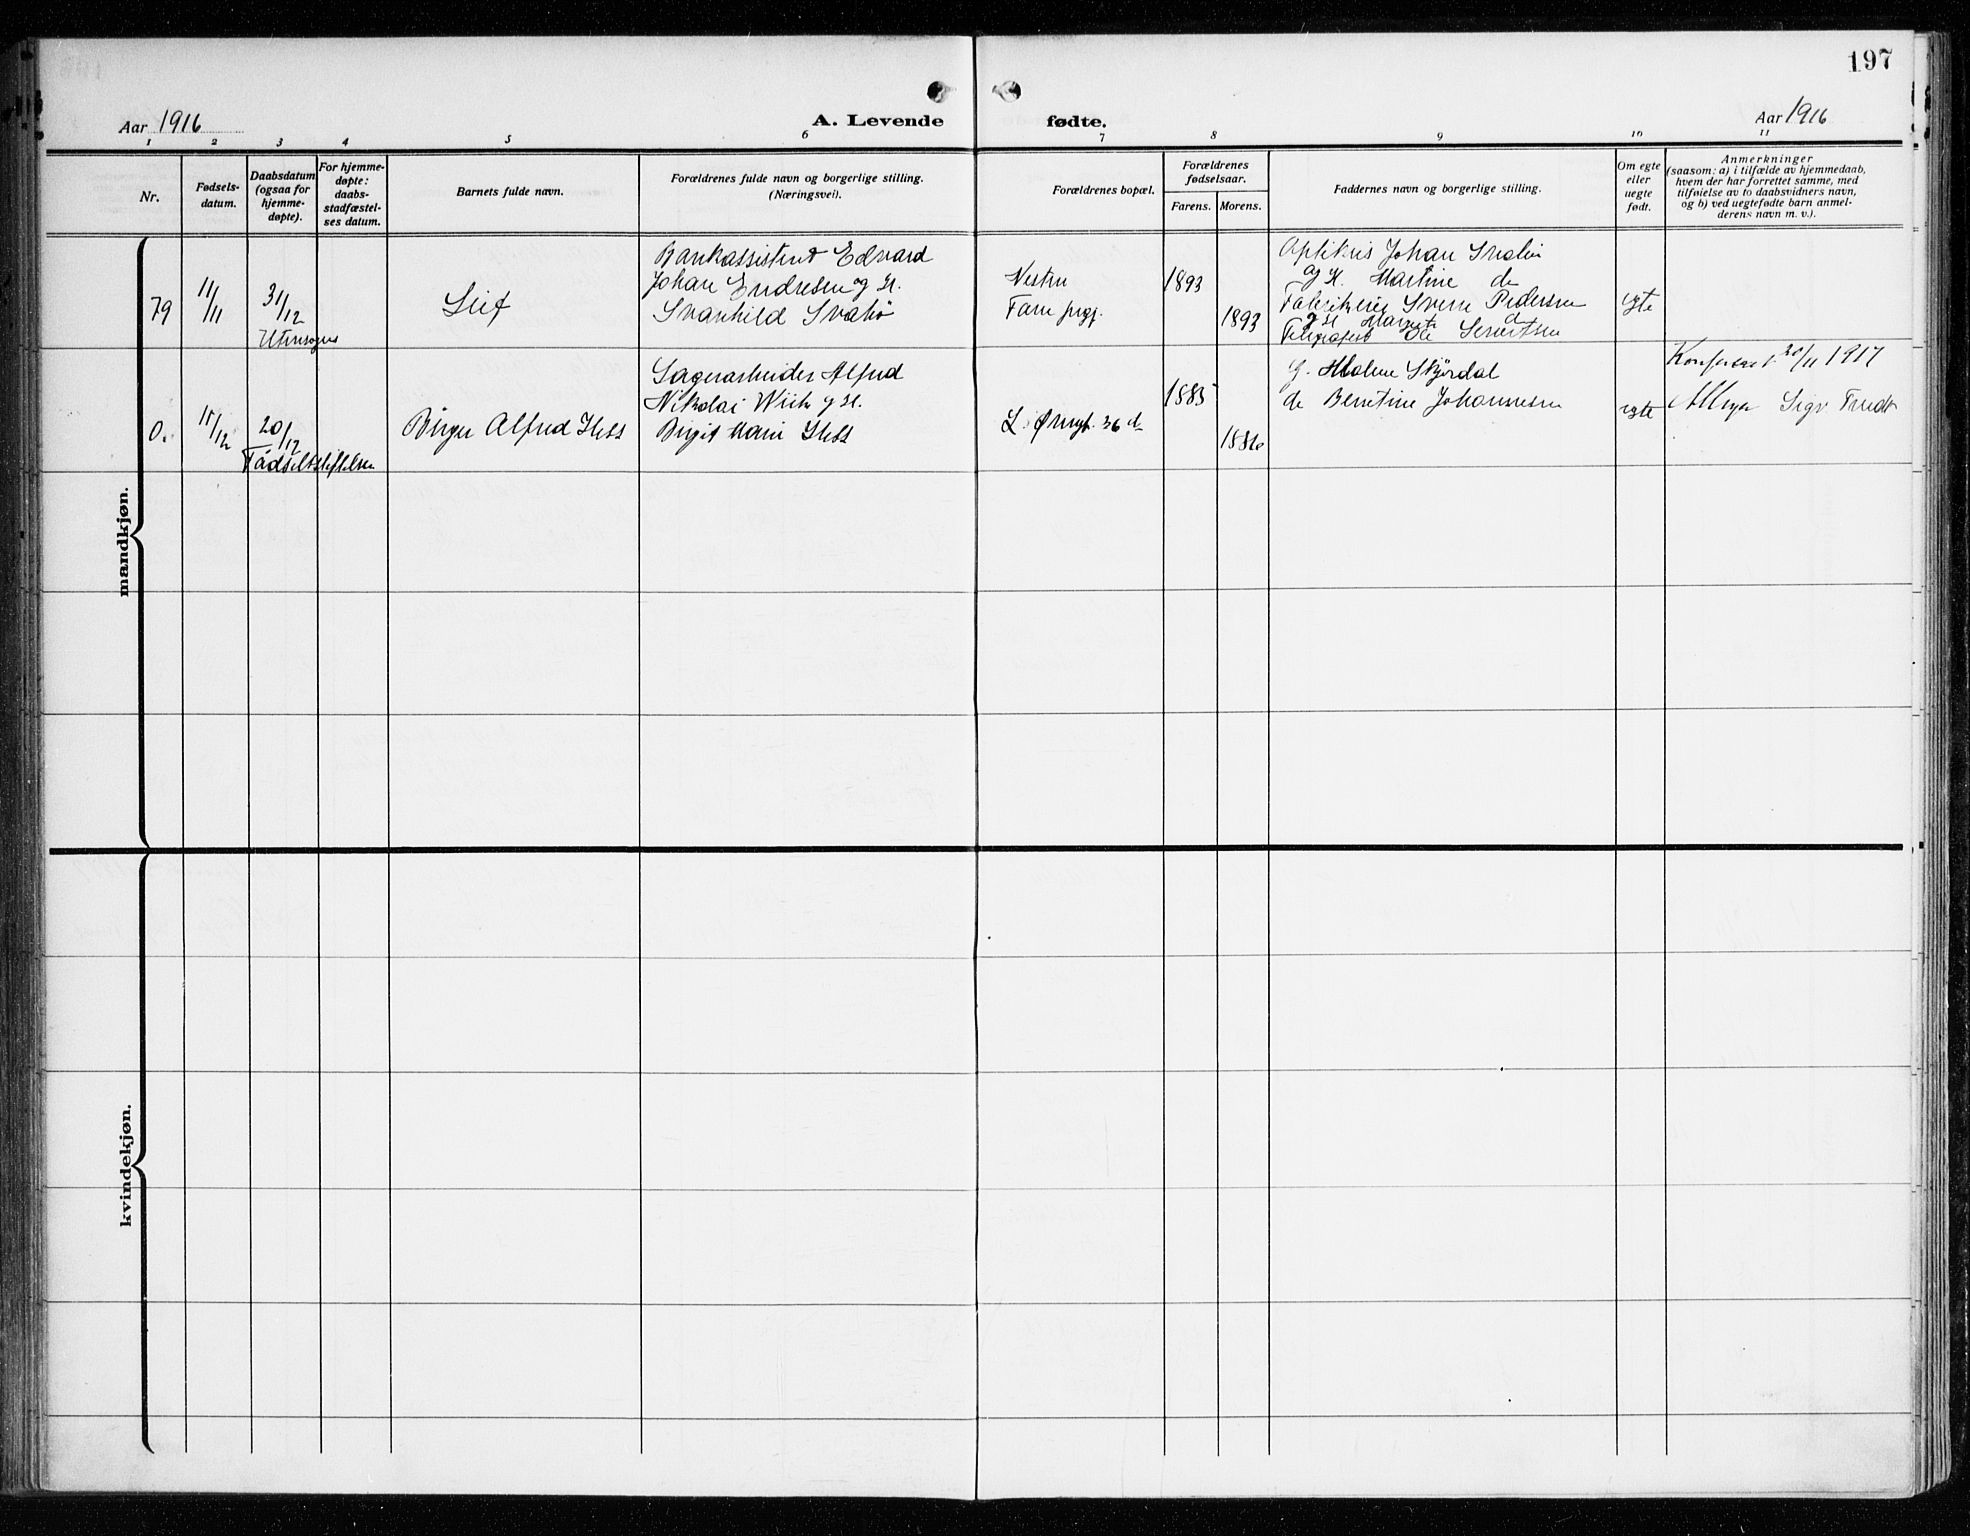 197
Aar 1916
A. Levende fødte.
Aar 1916
1 2 3 4 5 6 7 8 9 10 11
Nr.
Fødsels-
datum.
Daabsdatum
(ogsaa for
hjemme-
døpte).
For hjemme-
døpte:
daabs-
stadfæstel-
ses datum.
Barnets fulde navn.
Forældrenes fulde navn og borgerlige stilling.
(Næringsvei).
Forældrenes bopæl.
Forældrenes
fødselsaar.
Farens. Morens.
Faddernes navn og borgerlige stilling.
Om egte
eller
uegte
født.
Anmerkninger
(saasom: a) i tilfælde av hjemmedaab,
hvem der har forrettet samme, med
tilføielse av to daabsvidners navn,
og b) ved uegtefødte barn anmel-
derens navn m. v.).
mandkjøn.
79
11/11
31/12
Utensogns
Leif
Bankassistent Edvard
Johan Endresen og H.
Svanhild Svabø
Nestun
Fane prgj.
1893
1893
Johan
og H. Martine
Sverre Pedersen
Telegrafist Ole Sivertsen
egte
0.
11/12
20/12
Fødselsstiftelsen
Birger Alfred
Lagerarbeider Alfred
Nikolai Wiik og H.
Birgit Marie
L. Øregt. 36 d
1885
1886
G. Malene Skjørdal
de Berntine Johannesen
egte
Konferert 20/11 1917
AMeyer Sigv. Tredt
kvindekjøn.